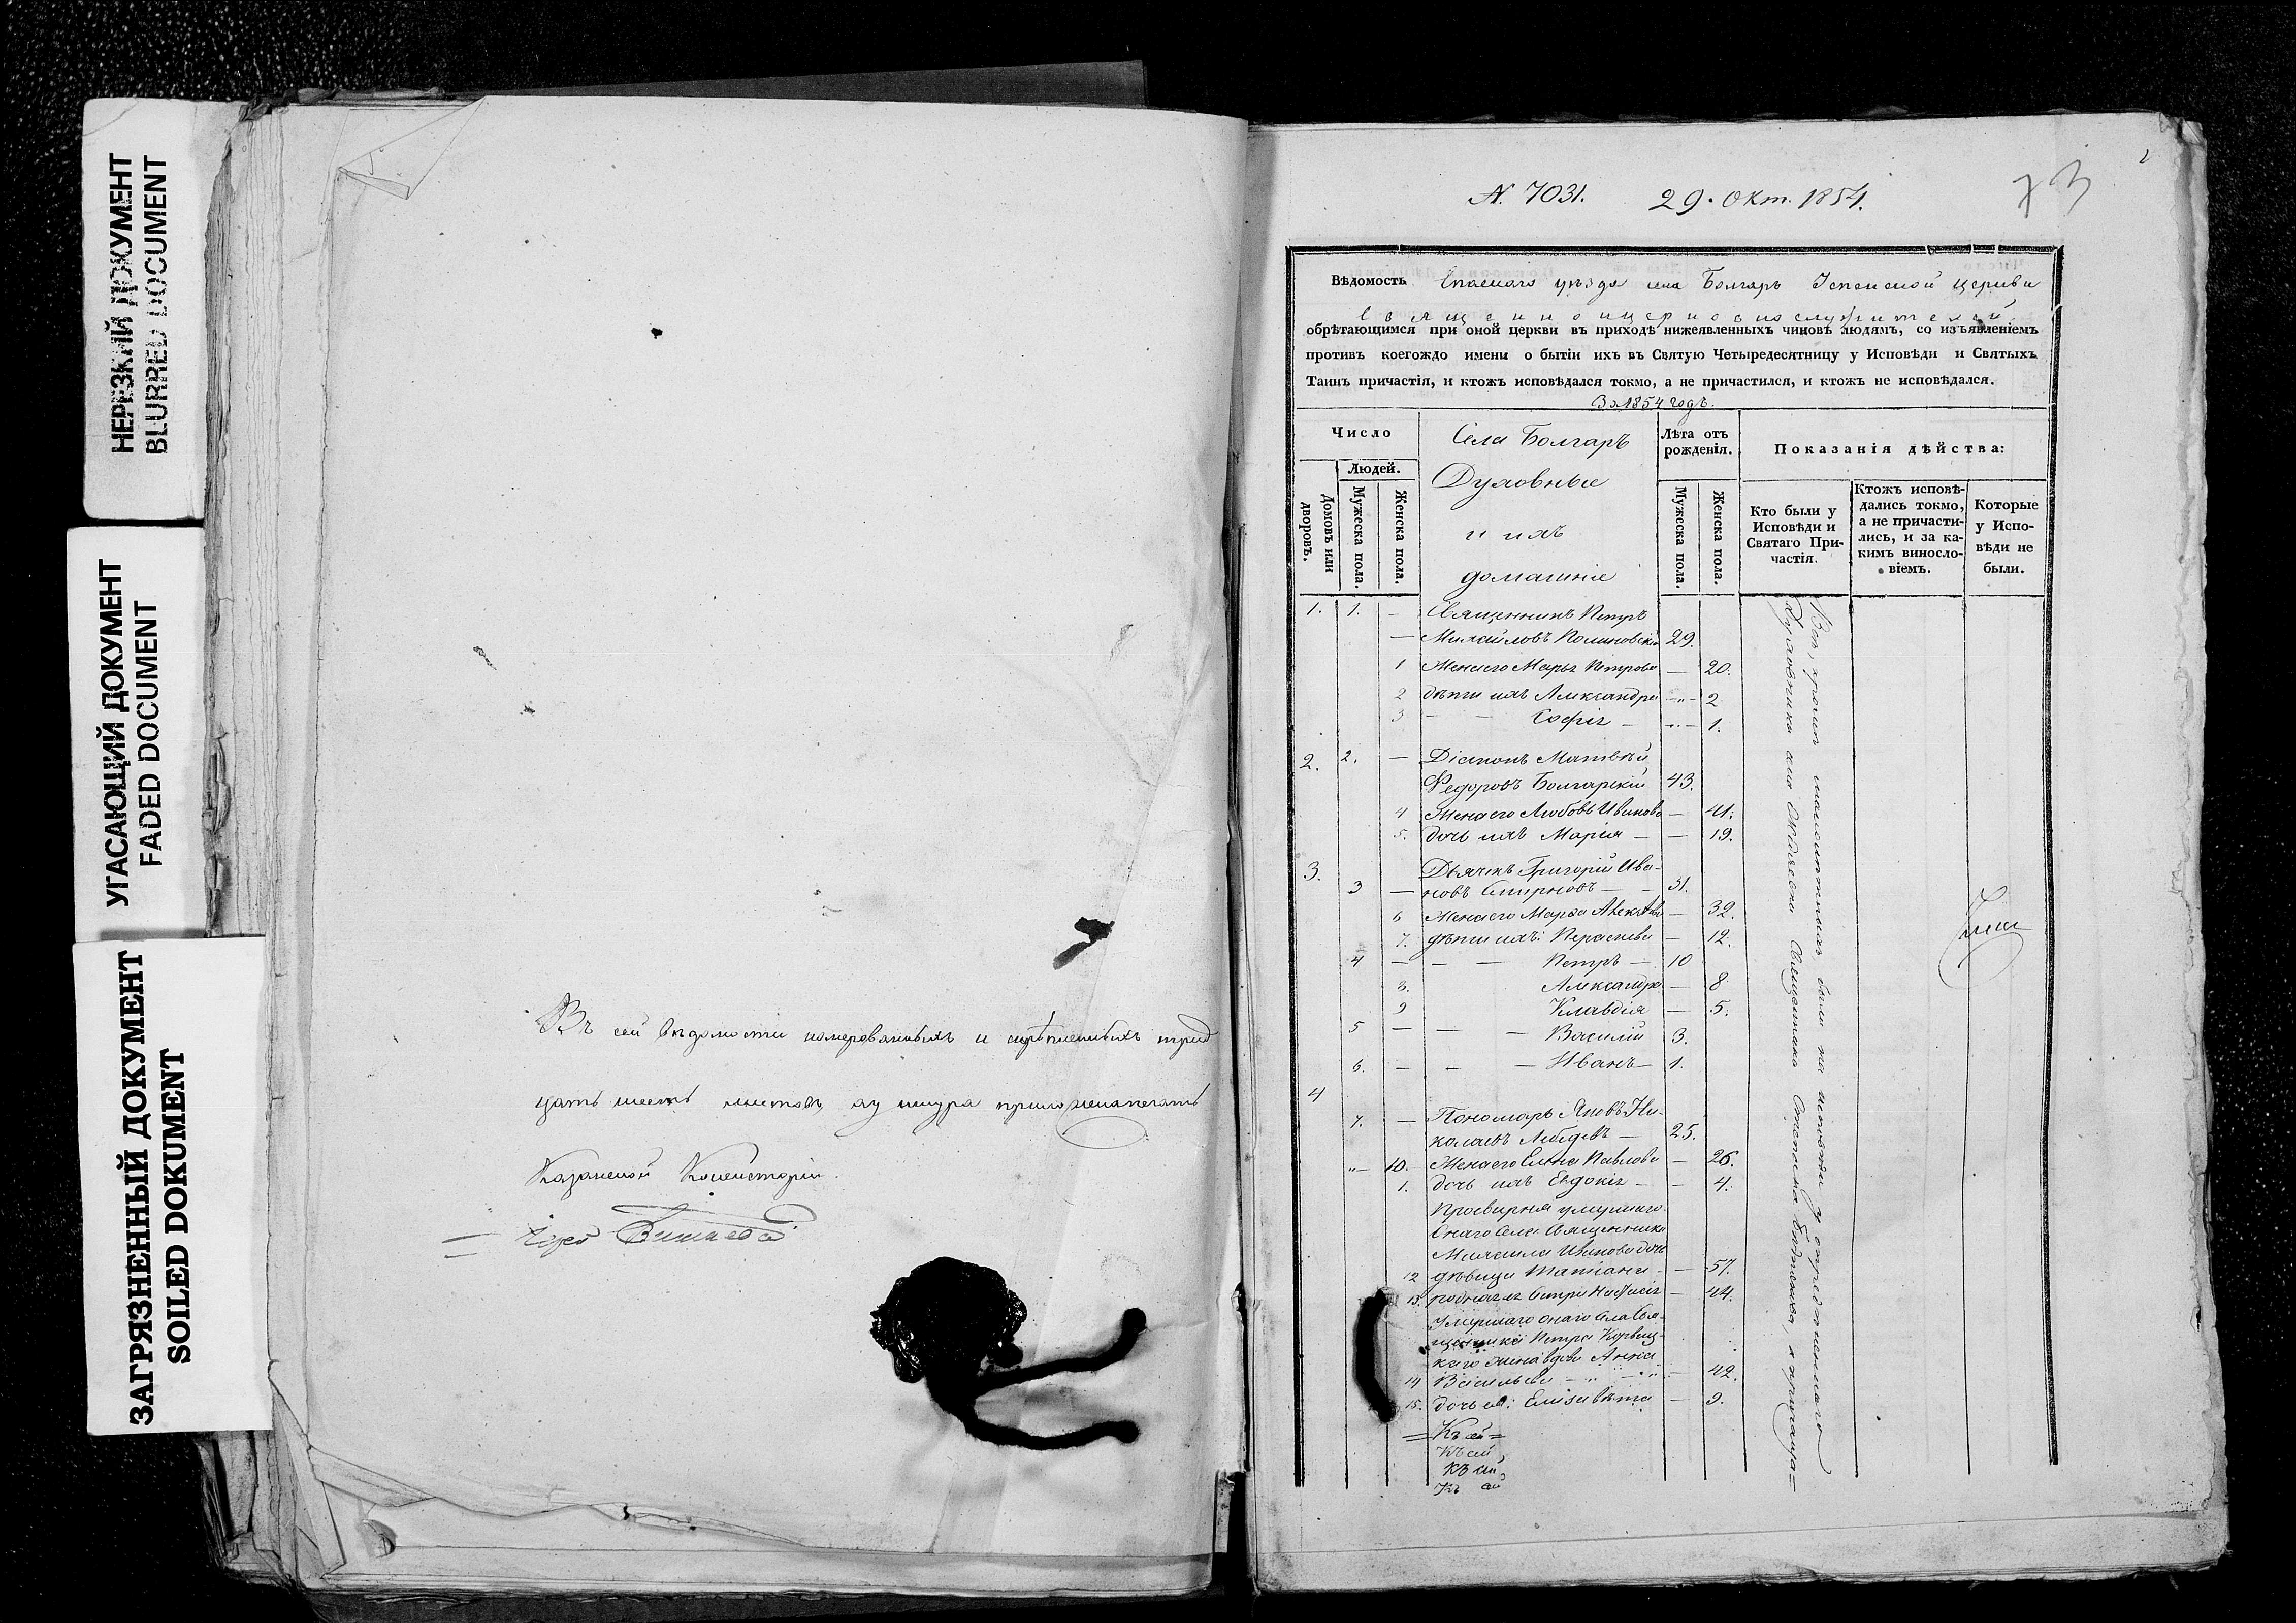 НЕРЕЗКИЙ ДОКУМЕНТ
BLURRED DOCUMENT
УГАСАЮЩИЙ ДОКУМЕНТ
FADED DOCUMENT
ЗАГРЯЗНЕННЫЙ ДОКУМЕНТ
SOILED DOKUMENT
Въ сей вѣдомости номерованныхъ и скрѣпленныхъ трид
цать шесть листовъ, а у шнура приложена печать
Казанской Консисторіи.
N. 7031. 29. Окт. 1854.
73
Вѣдомость Спаскаго уѣзда села Болгаръ Успенской церкви
священноцерковнослужителей
обрѣтающимся при оной церкви въ приходѣ нижеявленныхъ чиновъ людямъ, со изъявленіемъ
противъ коегождо имени о бытіи ихъ въ Святую Четыредесятницу у Исповѣди и Святыхъ
Таинъ причастія, и ктожъ исповѣдался токмо, а не причастился, и ктожъ не исповѣдался.
За 1854 годъ.
Число
Людей.
Домовъ или дворовъ.
Мужеска пола.
Женска пола.
Села Болгаръ
Духовные
и ихъ
домашніе
Лѣта отъ рожденія.
Мужеска пола.
Женска пола.
Показанія дѣйства:
Кто были у Исповѣди и Святаго Причастія.
Ктожъ исповѣдались токмо, а не причастились, и за какимъ винословіемъ.
Которые у Исповѣди не были.
1. 1. — Священникъ Петръ
— Михайловъ 29.
1 Жена его Марья Петрова — 20.
2 дѣти ихъ Александра — 2
3 — — Софія — 1.
2. 2. — Діаконъ Матвѣй
Федоровъ Болгарскій 43.
4 Жена его Любовь Иванова — 41.
5. дочь ихъ Марія — — 19.
3. Дьячекъ Григорій Ива-
3 — новъ Смирновъ — 31.
6 Жена его Марѳа — 32.
7. дѣти ихъ: Параскева — 12.
4 — — — Петръ — 10
8. Александра — 8
9 Клавдія — 5.
5 — — — Василій 3.
6. — — — Иванъ 1.
4
7. — Пономарь Яковъ Ни-
колаевъ Лебедевъ — 25.
„— 10. Жена его Елена Павлова — 26.
1. дочь ихъ Евдокія — — 4.
Просвирня умершаго
онаго села священника
Михаила Иванова дочь
12 дѣвица Татіана — 57.
13. родная ея сестра — 44.
Умершаго онаго села Свя-
щенника Петра
каго жена вдова Анна
14 Васильева — 42.
15. дочь ея: Елизавета — 9.
Къ сей
Къ сей
Къ сей
Къ сей
Всѣ, кромѣ малолѣтнихъ были на исповѣди у